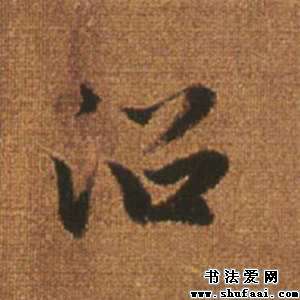 沿
书法爱网
www.shufaai.com